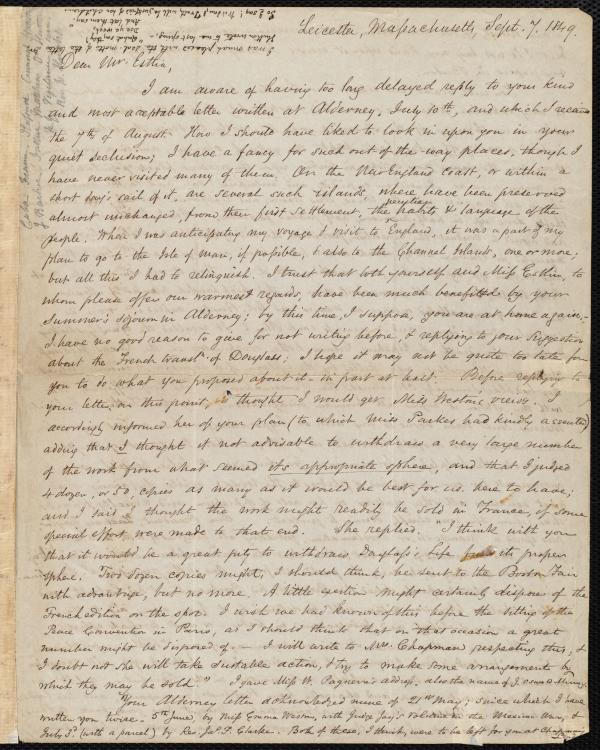 Leicester, Massachusetts, Sept. 7. 1849.
Dear Mr. Estlin,
I am aware of having too long delayed reply to your kind
and most acceptable letter written at Alderney, July 10th, and which I received
the 7th of August. How I should have liked to look in upon you in your
quiet seclusion; I have a fancy for such out-of-the-way places, though I
have never visited many of them. On the New England coast, or within a
short day's sail of it, are several such islands, where have been preserved
almost unchanged, from their first settlement, the habits & language of the
people. When I was anticipating my voyage & visit to England, it was a part of my
plan to go to the Isle of Man, if possible, & also to the Channel Islands, one or more;
but all this I had to relinquish. I trust that both yourself and Miss Estlin, to
whom please offer our warmest regards, have been much benefited by your
summer's sojourn in Alderney; by this time, I suppose, you are at home again.-
I have no good reason to give, for not writing before, & replying to your suggestion
about the French translⁿ. of Douglass; I hope it may not be quite too late for
you to do what you proposed about it - in part at least. Before replying to
your letter, on this point, I thought I would get Miss Weston's views. I
accordingly informed her of your plan (to which Miss Parkes had kindly assented)
adding that I thought it not advisable to withdraw a very large number
of the work from what seemed its appropriate sphere, and that I judged
4 dozen, or 50, copies as many as it would be best for us here to have;
and I said I thought the work might readily be sold in France, if some
special effort were made to that end. She replied, "I think with you
that it would be a great pity to withdraw Douglass's Life from its proper
sphere. Two dozen copies might, I should think, be sent to the Boston Fair
with advantage, but no more. A little exertion might certainly dispose of the
French edition on the spot. I wish we had known of this before the sitting of the
Peace Convention in Paris, as I should think that on that occasion a great
number might be disposed of. - I will write to Mrs. Chapman respecting this, &
I doubt not she will take suitable action, & try to make some arrangement by
which they may be sold." I gave Miss W. Pagnerre's address, also the name of
Your Alderney letter acknowledged mine of 21st May; since which I have
written you twice - 5th June, by Miss Emma Weston, with Judge Jay's volume on the Mexican War, &
July 3d. (with a parcel) by Rev. Jas. F. Clarke. Both of these, I think, were to be left for you at Chapman's